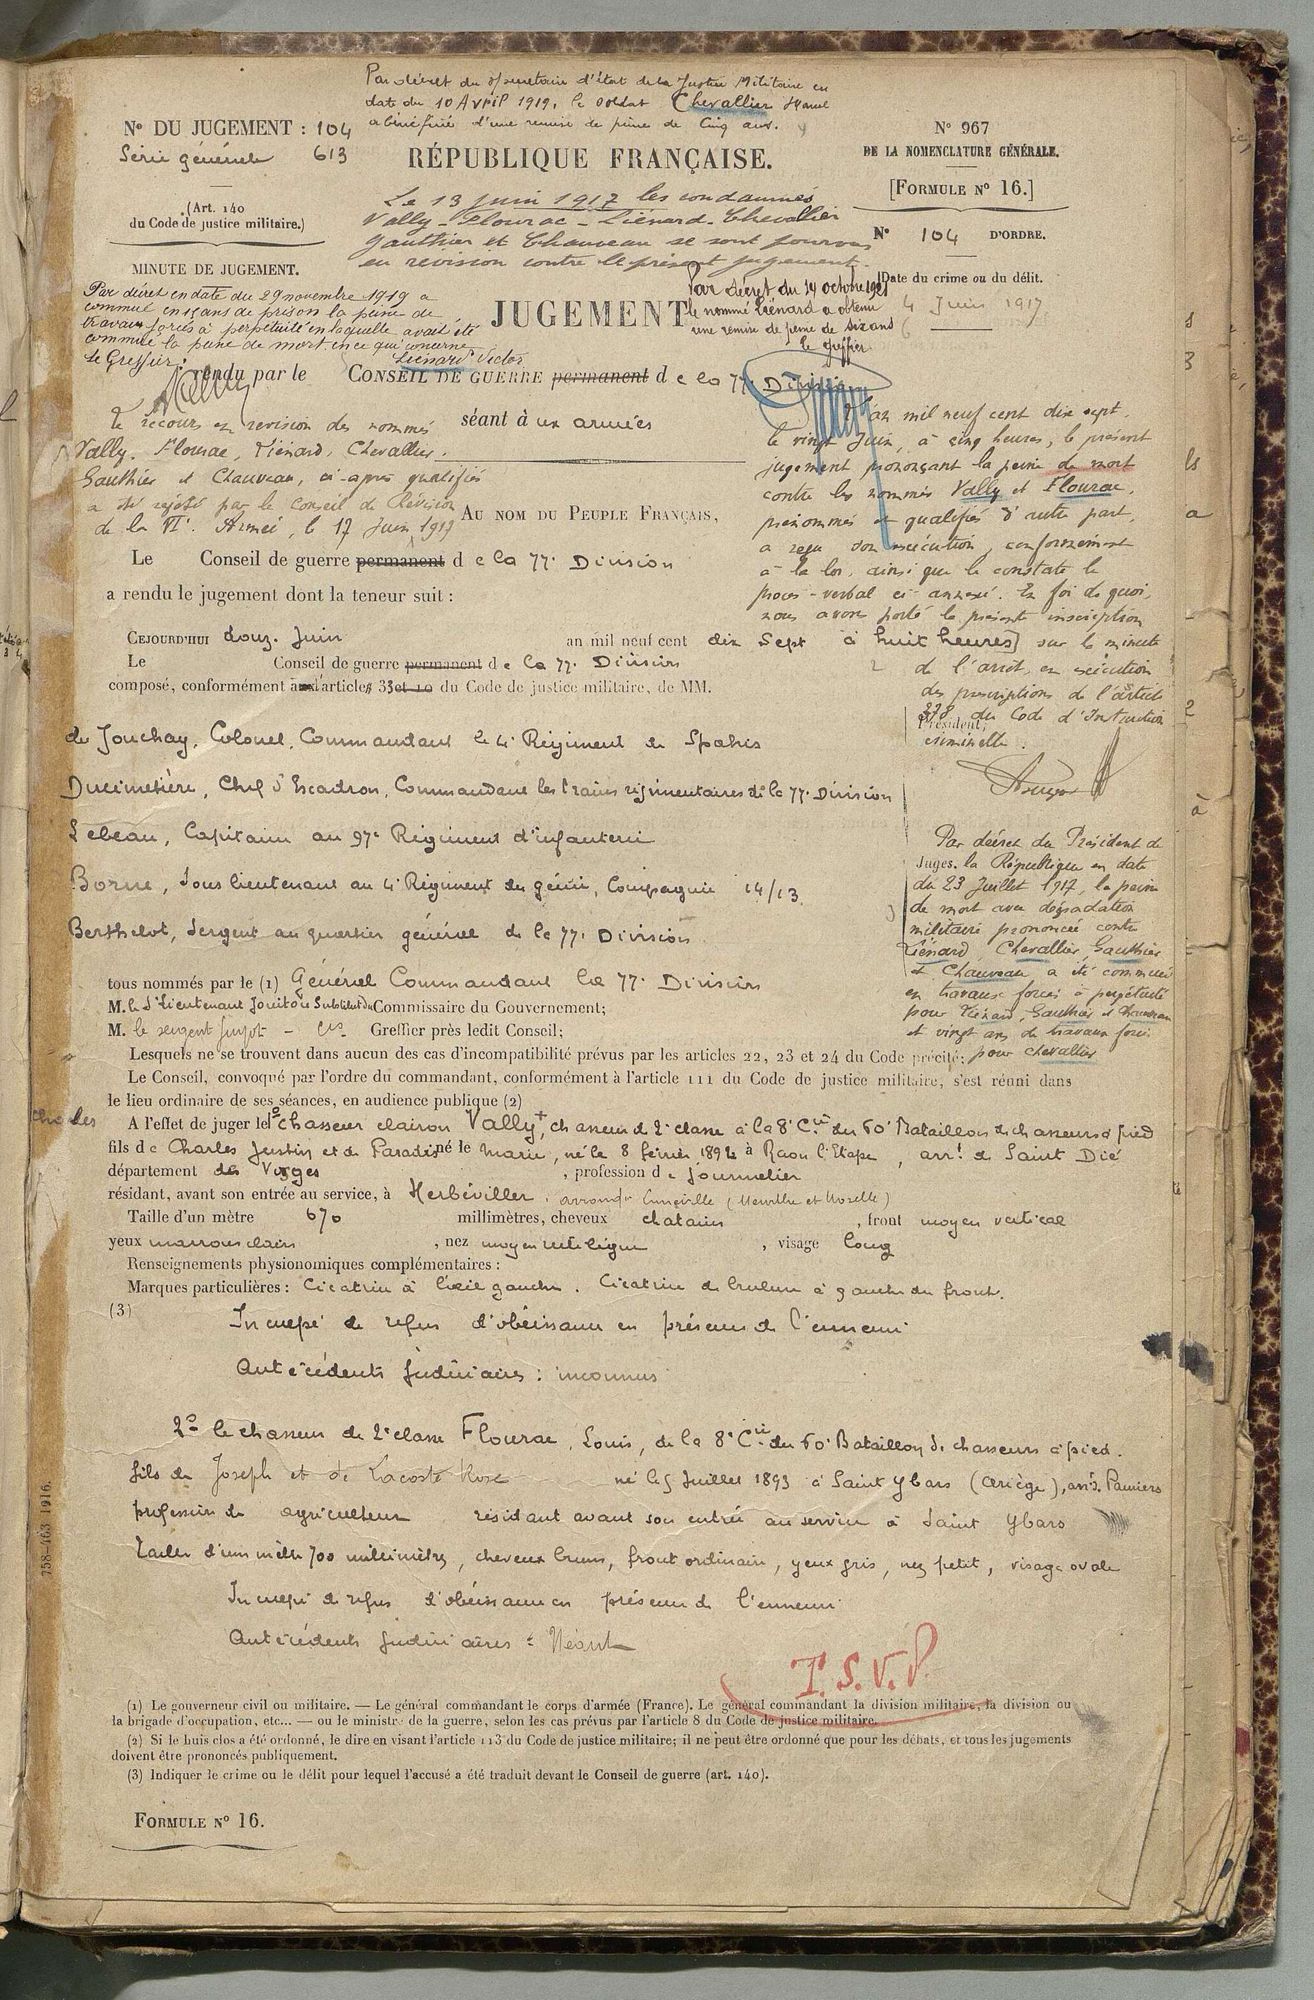 Par décret du secrétaire d'état de la Justice Militaire en
date du 10 Avril 1919, le soldat Chevallier
a bénéficié d'une remise de peine de Cinq ans.
N° DU JUGEMENT : 104
Série générale 613
RÉPUBLIQUE FRANÇAISE.
N° 967
DE LA NOMENCLATURE GÉNÉRALE.
[FORMULE N° 16.]
(Art. 140
du Code de justice militaire.)
Le 13 juin 1917 les condamnés
Vally - Flourac - Liénard - Chevallier
Gauthier et Chauveau se sont pourvus
en revision contre le présent jugement.
N° 104 D'ORDRE.
MINUTE DE JUGEMENT.
Date du crime ou du délit.
4 Juin 1917
6
Par décret en date du 29 novembre 1919 a
commué en 15 ans de prison la peine de
travaux forcés à perpétuité en laquelle avait été
commuée la peine de mort en ce qui concerne
Liénard Victor
le Greffier :
JUGEMENT
Par décret du 14 octobre 1921
le nommé Liénard a obtenu
une remise de peine de six ans
le Greffier
rendu par le CONSEIL DE GUERRE permanent d e la 77e Division
séant à ux armées
Le recours en revision des nommés
Vally, Flourac, Liénard, Chevallier,
Gauthier et Chauveau, ci-après qualifiés
a été rejeté par le Conseil de Révision
de la VIe Armée, le 17 Juin 1917
L'an mil neuf cent dix sept,
le vingt Juin, à cinq heures, le présent
jugement prononçant la peine de mort
contre les nommés Vally et Flourac,
prénommés et qualifiés d'autre part,
a reçu son exécution, conformément
à la loi, ainsi que le constate le
procès-verbal ci-annexé. En foi de quoi,
nous avons porté la présente inscription
sur la minute
de l'arrêt, en exécution
des prescriptions de l'article
378 du Code d'Instruction
criminelle.
AU NOM DU PEUPLE FRANÇAIS,
Le Conseil de guerre permanent d e la 77e Division
a rendu le jugement dont la teneur suit :
CEJOURD'HUI douze Juin an mil neuf cent dix Sept à huit heures
Le Conseil de guerre permanent d e la 77e Division
composé, conformément aux l'articles 33 et 10 du Code de justice militaire, de MM.
Président
de Jouchay, Colonel, Commandant le 4e Régiment de Spahis
Ducimetière, Chef d'Escadron, Commandant les trains régimentaires de la 77e Division
Lebeau, Capitaine au 97e Régiment d'infanterie
Borne, Sous lieutenant au 4e Régiment du génie, Compagnie 14/13
Berthelot, Sergent au quartier général de la 77e Division
Juges.
Par décret du Président de
la République en date
du 23 Juillet 1917, la peine
de mort avec dégradation
militaire prononcée contre
Liénard, Chevallier, Gauthier
et Chauveau a été commuée
en travaux forcés à perpétuité
pour Liénard, Gauthier et Chauveau
et vingt ans de travaux forcés
pour Chevallier
tous nommés par le (1) Général Commandant la 77e Division
M. le S/Lieutenant Substitut du Commissaire du Gouvernement;
M. le sergent Greffier près ledit Conseil;
Lesquels ne se trouvent dans aucun des cas d'incompatibilité prévus par les articles 22, 23 et 24 du Code précité;
Le Conseil, convoqué par l'ordre du commandant, conformément à l'article 111 du Code de justice militaire, s'est réuni dans
le lieu ordinaire de ses séances, en audience publique (2)
Charles
A l'effet de juger le 1° Chasseur clairon Vally +, chasseur de 2e classe à la 8e Cie du 60e Bataillon de chasseurs à pied
fils de Charles Justin et de Paradis né le Marie, né le 8 février 1894 à Raon l'Etape, arrt de Saint Dié
département des Vosges, profession de journalier
résidant, avant son entrée au service, à Herbéviller, arrondt Lunéville (Meurthe et Moselle)
Taille d'un mètre 670 millimètres, cheveux chatains, front moyen vertical
yeux marrons clairs, nez moyen rectiligne, visage long
Renseignements physionomiques complémentaires :
Marques particulières : Cicatrice à l'œil gauche. Cicatrice de brulure à gauche du front.
(3)
Inculpé de refus d'obéissance en présence de l'ennemi
Antécédents judiciaires : inconnus
2° le chasseur de 2e classe Flourac, Louis, de la 8e Cie du 60e Bataillon de chasseurs à pied.
fils de Joseph et de Lacoste Rose né le 5 Juillet 1893 à Saint Ybars (Ariège), arrt. Pamiers
profession de agriculteur résidant avant son entrée au service à Saint Ybars
Taille d'un mètre 700 millimètres, cheveux bruns, front ordinaire, yeux gris, nez petit, visage ovale
Inculpé de refus d'obéissance en présence de l'ennemi
Antécédents judiciaires : Néant
T.S.V.P.
(1) Le gouverneur civil ou militaire. — Le général commandant le corps d'armée (France). Le général commandant la division militaire, la division ou
la brigade d'occupation, etc... — ou le ministre de la guerre, selon les cas prévus par l'article 8 du Code de justice militaire.
(2) Si le huis clos a été ordonné, le dire en visant l'article 113 du Code de justice militaire; il ne peut être ordonné que pour les débats, et tous les jugements
doivent être prononcés publiquement.
(3) Indiquer le crime ou le délit pour lequel l'accusé a été traduit devant le Conseil de guerre (art. 140).
FORMULE N° 16.
758-463 1916.